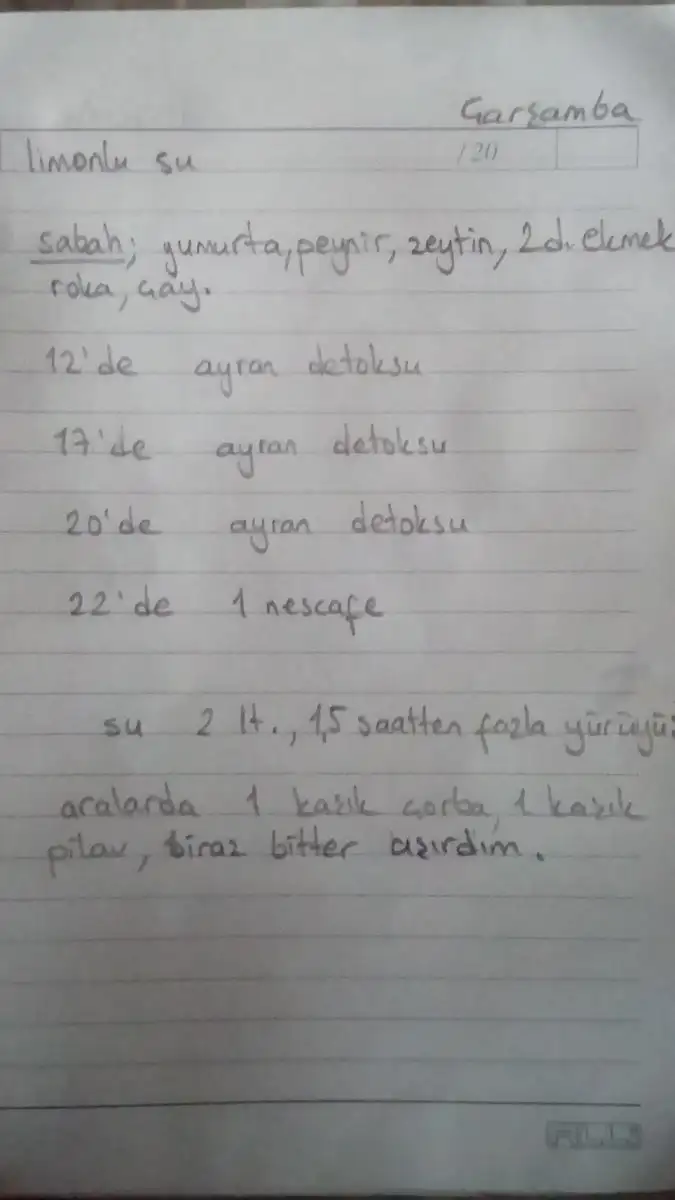 Çarşamba
limonlu su
/20
sabah; yumurta, peynir, zeytin, 2 d. ekmek
roka, çay.
12'de ayran detoksu
17'de ayran detoksu
20'de ayran detoksu
22'de 1 nescafe
su 2 lt., 1,5 saatten fazla yürüyü
aralarda 1 kaşık çorba, 1 kaşık
pilav, biraz bitter aşırdım.